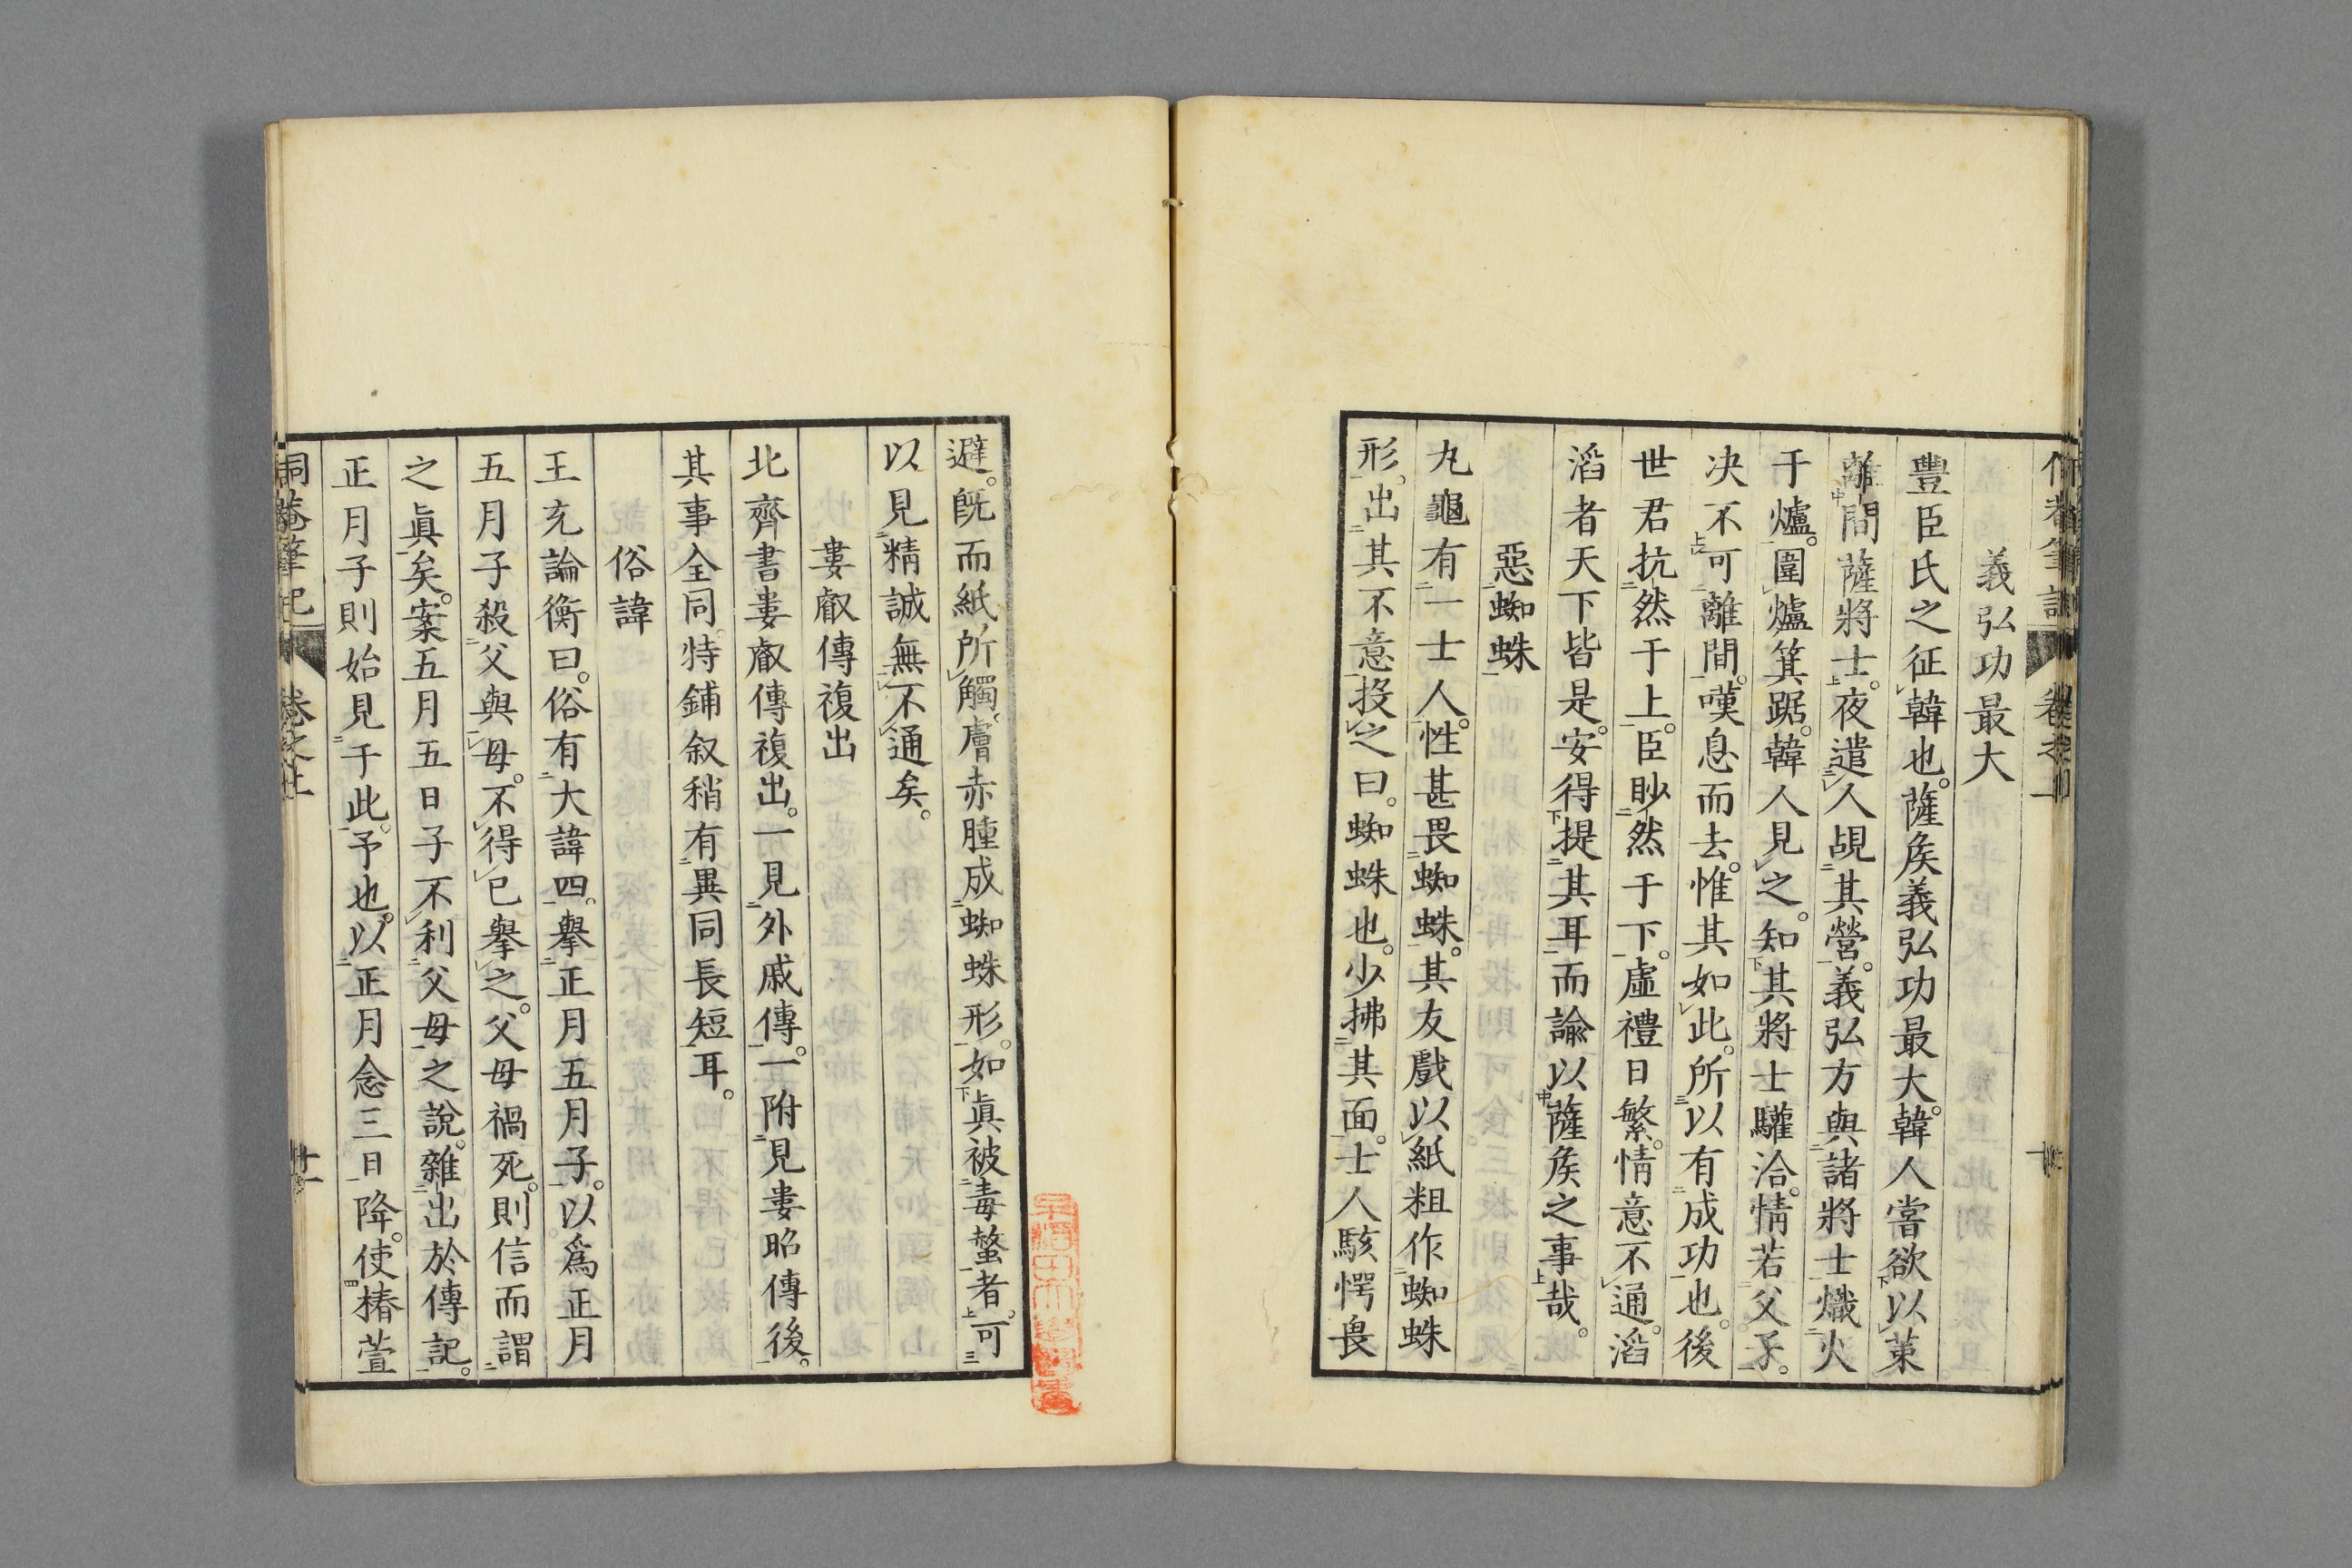 義弘功最大
豐臣氏之征韓也。薩矦義弘功最大。韓人嘗欲以菓
離間薩將士。夜遣人覘其營。義弘方與諸將士熾火
于爐。圍爐箕踞。韓人見之。知其將士驩洽。情若父子。
决不可離間。嘆息而去。惟其如此。所以有成功也。後
世君抗然于上。臣眇然于下。虛禮日繁。情意不通。滔
滔者天下皆是。安得提其耳而諭以薩矦之事哉。
惡蜘蛛
丸龜有一士人。性甚畏蜘蛛。其友戲以紙粗作蜘蛛
形。出其不意投之曰。蜘蛛也。少拂其面。士人駭愕㒵
避。旣而紙所觸膚赤腫成蜘蛛形。如眞被毒螫者。可
以見精誠無不通矣。
婁叡傳複出
北齊書婁叡傳複出。一見外戚傳。一附見婁昭傳後。
其事全同。特鋪叙稍有異同長短耳。
俗諱
王充論衡曰。俗有大諱四。擧正月五月子。以爲正月
五月子殺父與母。不得已擧之。父母禍死。則信而謂
之眞矣。案五月五日子不利父母之說。雜出於傳記。
正月子則始見于此。予也。以正月念三日降。使椿萱
侗菴筆記 卷之上